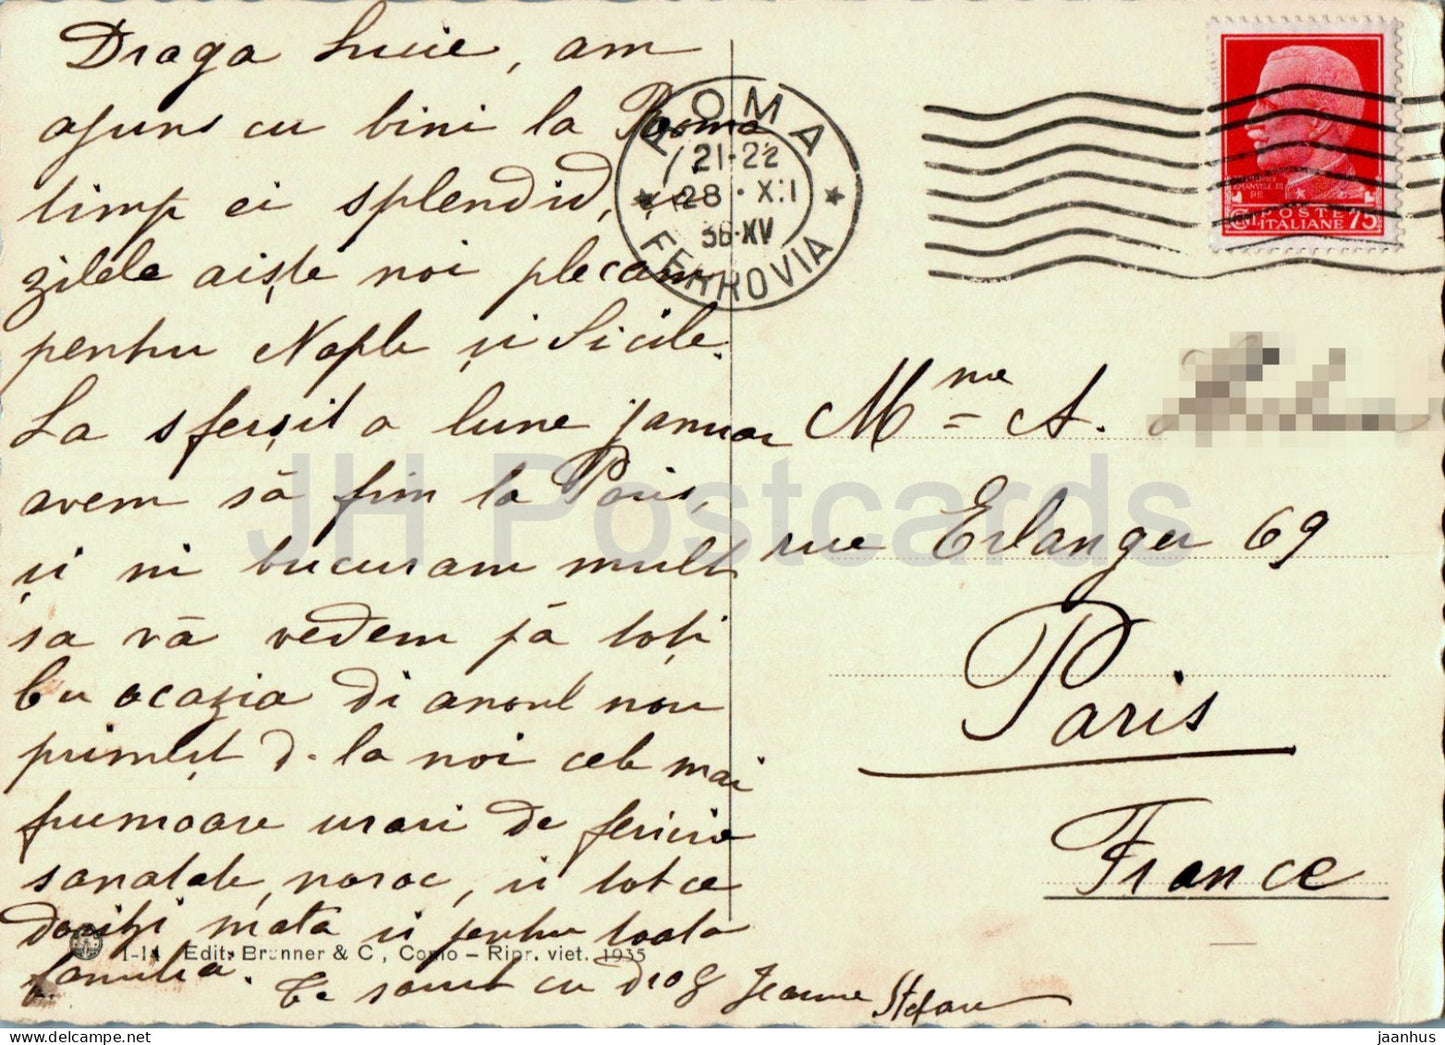 Draga Lucie, am
ajuns cu bini la Roma
timp ei splendid, și
zilele aiște noi plecam
pentru Naple și Sicile.
La sferșit a lune januar
avem să fim la Paris,
și ni bucuram mult
sa vă vedem pă toți
Cu ocazia di anoul nou
primești d. la noi cele mai
frumoase urari de fericire
sanatate, noroc, si tot ce
doriți mata si pentru toata
familia. Te sarut cu drag Jeanne Stefan
ROMA
FERROVIA
21-22
28·XII
36·XV
POSTE
ITALIANE
75
Mme A.
rue Erlanger 69
Paris
France
JH Postcards
1-14 Edit. Brunner & C., Como – Ripr. viet. 1935
www.jhpostcards.com
jaanhus